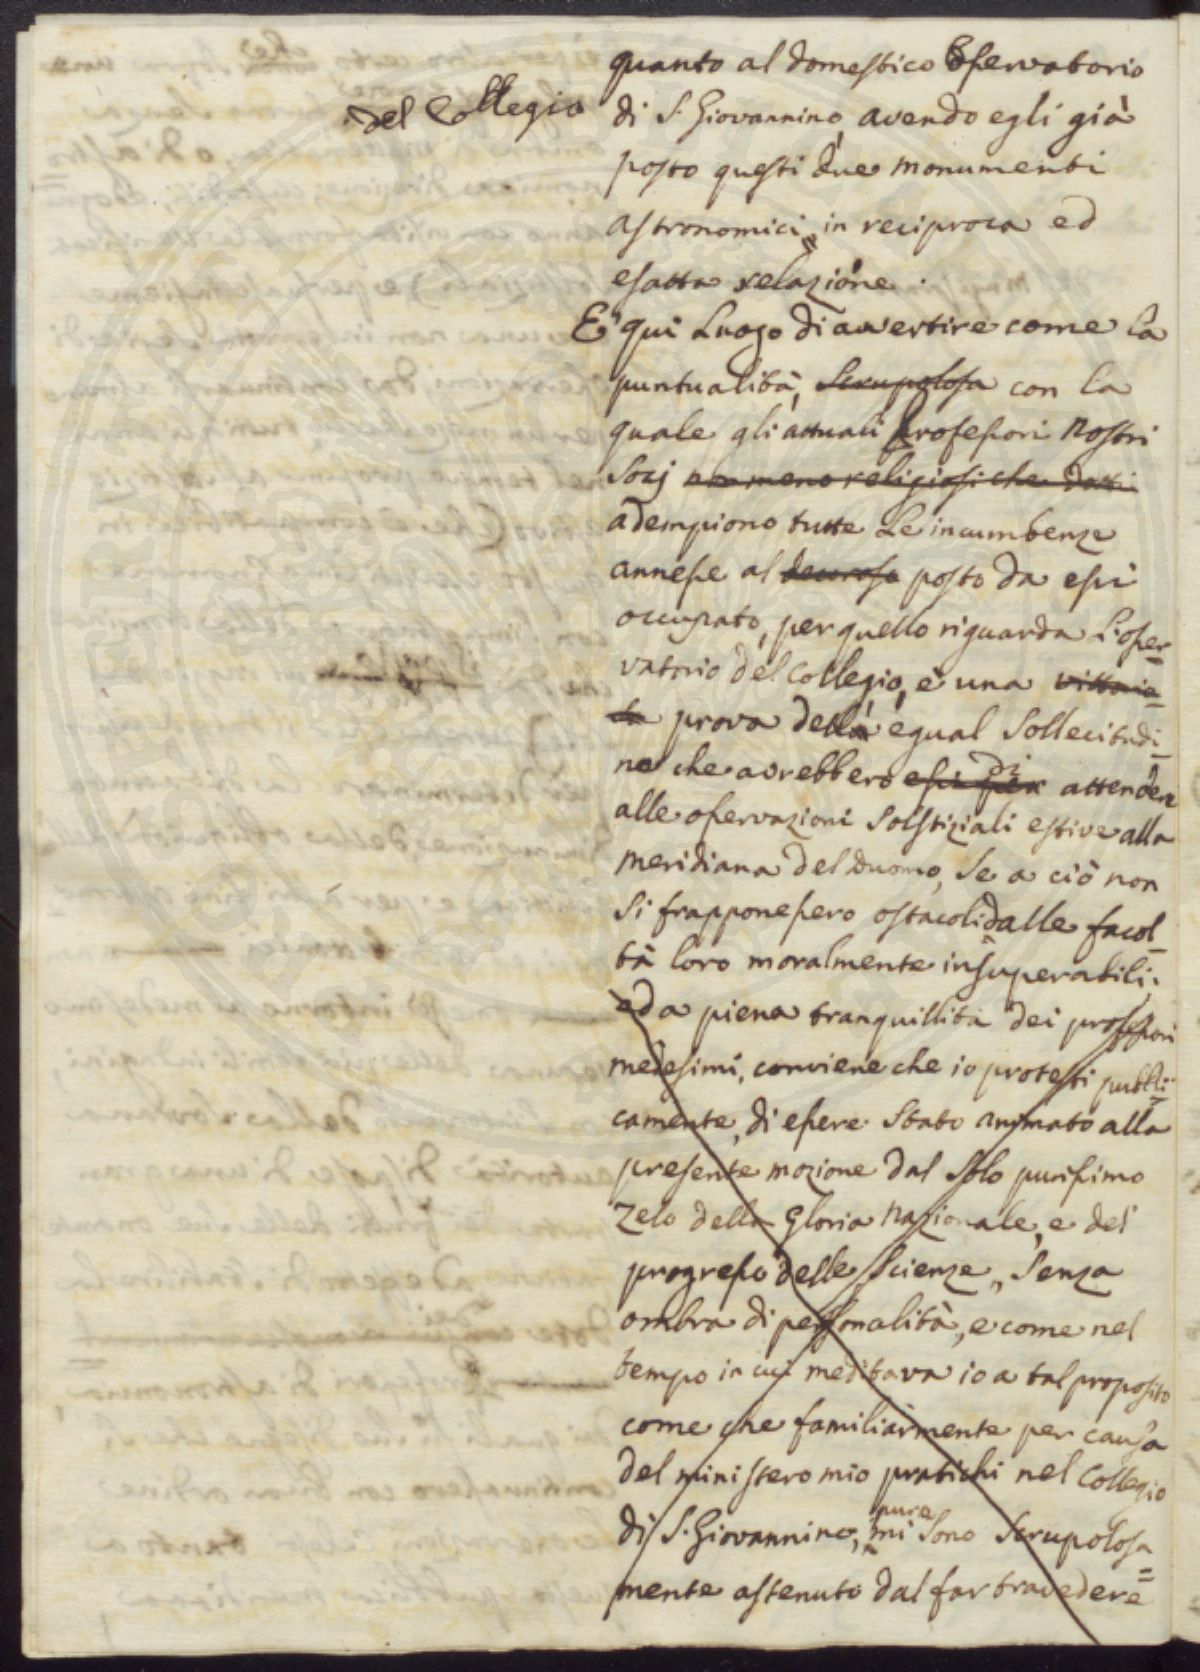 quanto al domestico Osservatorio
del Collegio
di S. Giovannino, avendo egli già
posto questi due monumenti
astronomici, in reciproca ed
esatta relazione.
E' qui Luogo di avvertire come la
puntualità, Scrupolosa con la
quale gli attuali Professori Nostri
Socj non meno religiosi che dotti
adempiono tutte Le incumbenze
annesse al decoroso posto da essi
occupato, per quello riguarda L'osser=
vatorio del Collegio, è una vittorio=
sa prova della egual Sollecitudi=
ne che avrebbero essi per di attendere
alle osservazioni Solstiziali estive alla
Meridiana del Duomo, Se a ciò non
Si frapponessero ostacoli dalle facol=
tà loro moralmente insuperabili.
ed a piena tranquillità dei professori
medesimi, conviene che io protesti pubbli=
camente, di essere Stato animato alla
presente mozione dal Solo purissimo
Zelo della Gloria Nazionale, e del
progresso delle Scienze, Senza
ombra di personalità, e come nel
tempo in cui meditava io a tal proposito
come che familiarmente per causa
del ministero mio pratichi nel Collegio
di S. Giovannino, pure mi Sono Scrupolosa=
mente astenuto dal far travedere